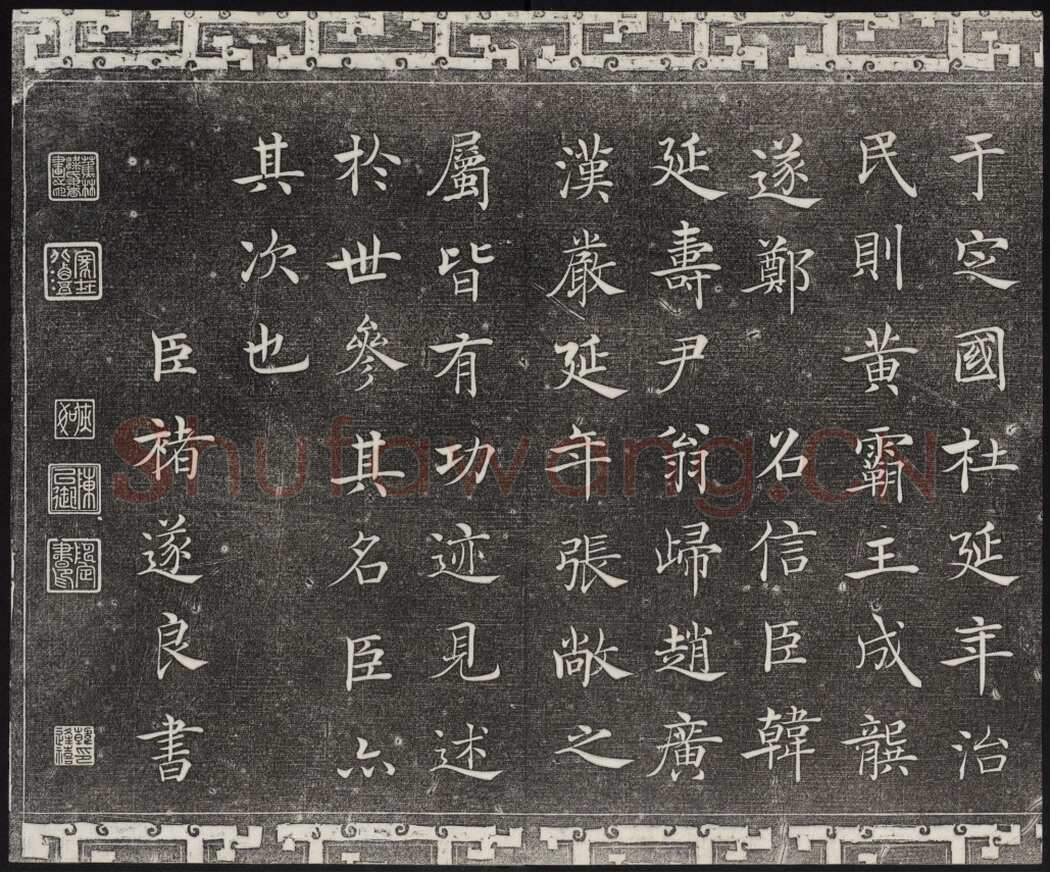 于定國杜延年治
民則黃霸王成龔
遂鄭 召信臣韓
延壽尹翁歸趙廣
漢嚴延年張敞之
屬皆有功迹見述
於世參其名臣亦
其次也
臣褚遂良書
Shufawang.CN